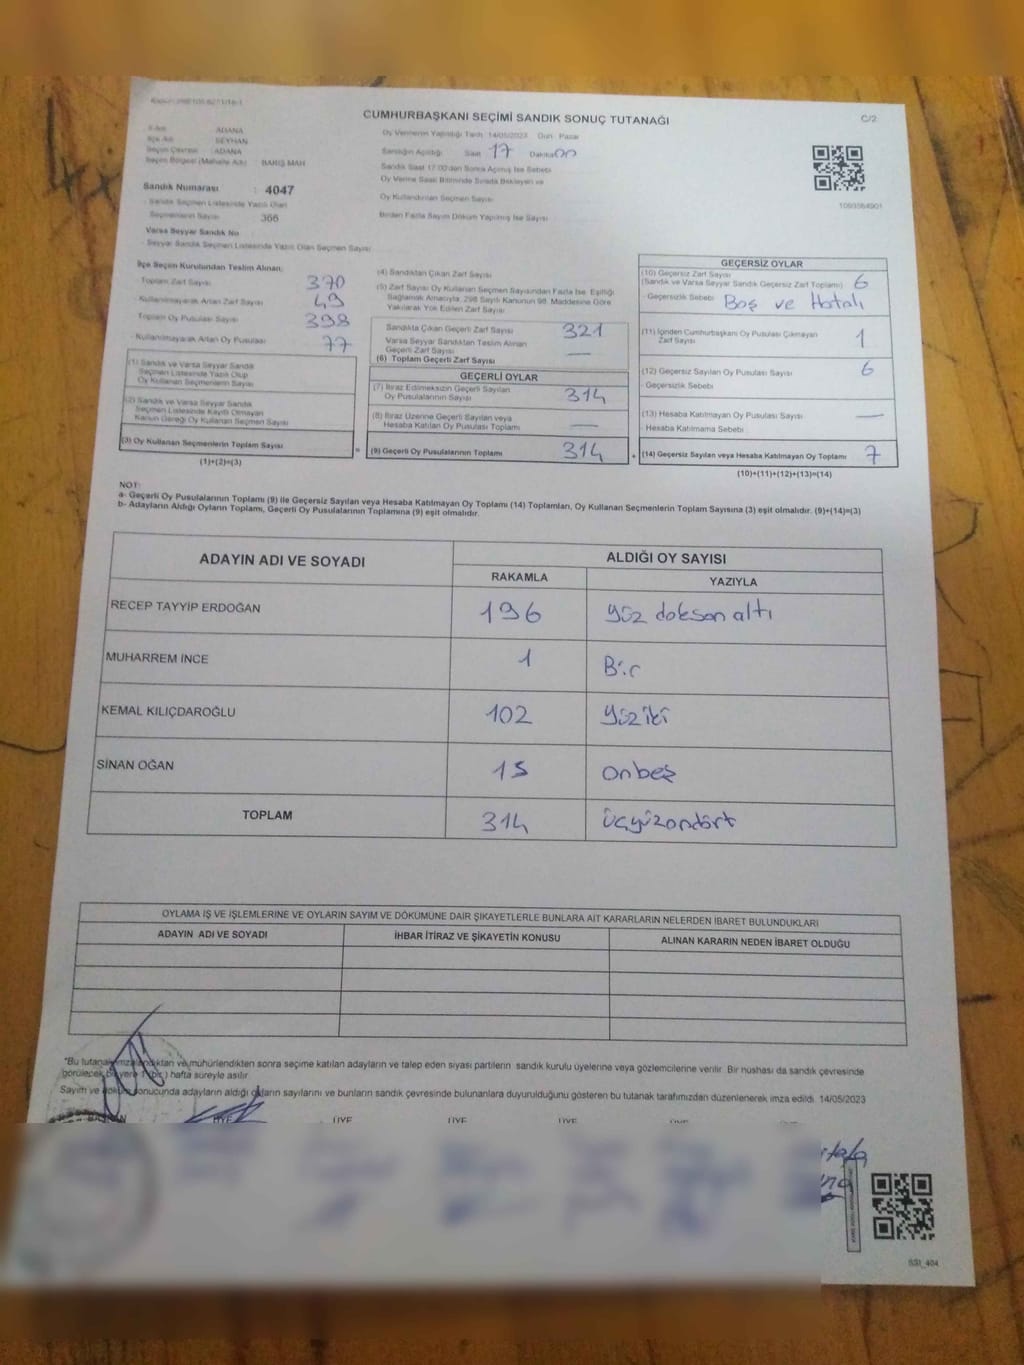 CUMHURBAŞKANI SEÇİMİ SANDIK SONUÇ TUTANAĞI
C/2
İlçe Adı SEYHAN
Seçim Çevresi ADANA
Seçim Bölgesi (Mahalle Adı) BARIŞ MAH
Sandık Numarası : 4047
Sandık Seçmen Listesinde Yazılı Olan
Seçmenlerin Sayısı 366
Varsa Seyyar Sandık No
Seyyar Sandık Seçmen Listesinde Yazılı Olan Seçmen Sayısı
Oy Vermenin Yapıldığı Tarih 14/05/2023 Gün Pazar
Sandığın Açıldığı Saat 17 Dakika 00
Sandık Saat 17:00'den Sonra Açılmış İse Sebebi
Oy Verme Saati Bitiminde Sırada Bekleyen ve
Oy Kullandırılan Seçmen Sayısı
Birden Fazla Sayım Döküm Yapılmış İse Sayısı
1093564901
İlçe Seçim Kurulundan Teslim Alınan;
- Toplam Zarf Sayısı 370
- Kullanılmayarak Artan Zarf Sayısı 49
Toplam Oy Pusulası Sayısı 398
- Kullanılmayarak Artan Oy Pusulası 77
(1) Sandık ve Varsa Seyyar Sandık
Seçmen Listesinde Yazılı Olup
Oy Kullanan Seçmenlerin Sayısı
(2) Sandık ve Varsa Seyyar Sandık
Seçmen Listesinde Kayıtlı Olmayan
Kanun Gereği Oy Kullanan Seçmen Sayısı
(3) Oy Kullanan Seçmenlerin Toplam Sayısı
(1)+(2)=(3)
(4) Sandıktan Çıkan Zarf Sayısı
(5) Zarf Sayısı Oy Kullanan Seçmen Sayısından Fazla İse, Eşitliği
Sağlamak Amacıyla, 298 Sayılı Kanunun 98. Maddesine Göre
Yakılarak Yok Edilen Zarf Sayısı
Sandıkta Çıkan Geçerli Zarf Sayısı 321
Varsa Seyyar Sandıktan Teslim Alınan
Geçerli Zarf Sayısı —
(6) Toplam Geçerli Zarf Sayısı
GEÇERLİ OYLAR
(7) İtiraz Edilmeksizin Geçerli Sayılan
Oy Pusulalarının Sayısı 314
(8) İtiraz Üzerine Geçerli Sayılan veya
Hesaba Katılan Oy Pusulası Toplamı —
= (9) Geçerli Oy Pusulalarının Toplamı 314
GEÇERSİZ OYLAR
(10) Geçersiz Zarf Sayısı
(Sandık ve Varsa Seyyar Sandık Geçersiz Zarf Toplamı) 6
- Geçersizlik Sebebi: Boş ve Hatalı
(11) İçinden Cumhurbaşkanı Oy Pusulası Çıkmayan
Zarf Sayısı 1
(12) Geçersiz Sayılan Oy Pusulası Sayısı 6
- Geçersizlik Sebebi :
(13) Hesaba Katılmayan Oy Pusulası Sayısı —
- Hesaba Katılmama Sebebi :
+ (14) Geçersiz Sayılan veya Hesaba Katılmayan Oy Toplamı 7
(10)+(11)+(12)+(13)=(14)
NOT:
a- Geçerli Oy Pusulalarının Toplamı (9) ile Geçersiz Sayılan veya Hesaba Katılmayan Oy Toplamı (14) Toplamları, Oy Kullanan Seçmenlerin Toplam Sayısına (3) eşit olmalıdır. (9)+(14)=(3)
b- Adayların Aldığı Oyların Toplamı, Geçerli Oy Pusulalarının Toplamına (9) eşit olmalıdır.
ADAYIN ADI VE SOYADI
ALDIĞI OY SAYISI
RAKAMLA YAZIYLA
RECEP TAYYİP ERDOĞAN 196 yüz doksan altı
MUHARREM İNCE 1 Bir
KEMAL KILIÇDAROĞLU 102 yüziki
SİNAN OĞAN 15 onbeş
TOPLAM 314 üçyüzondört
OYLAMA İŞ VE İŞLEMLERİNE VE OYLARIN SAYIM VE DÖKÜMÜNE DAİR ŞİKAYETLERLE BUNLARA AİT KARARLARIN NELERDEN İBARET BULUNDUKLARI
ADAYIN ADI VE SOYADI
İHBAR İTİRAZ VE ŞİKAYETİN KONUSU
ALINAN KARARIN NEDEN İBARET OLDUĞU
*Bu tutanak imzalandıktan ve mühürlendikten sonra seçime katılan adayların ve talep eden siyasi partilerin sandık kurulu üyelerine veya gözlemcilerine verilir. Bir nüshası da sandık çevresinde
görülecek bir yere 1 (bir) hafta süreyle asılır.
Sayım ve döküm sonucunda adayların aldığı oyların sayılarını ve bunların sandık çevresinde bulunanlara duyurulduğunu gösteren bu tutanak tarafımızdan düzenlenerek imza edildi. 14/05/2023
BAŞKAN ÜYE ÜYE ÜYE ÜYE ÜYE ÜYE
SSI_404